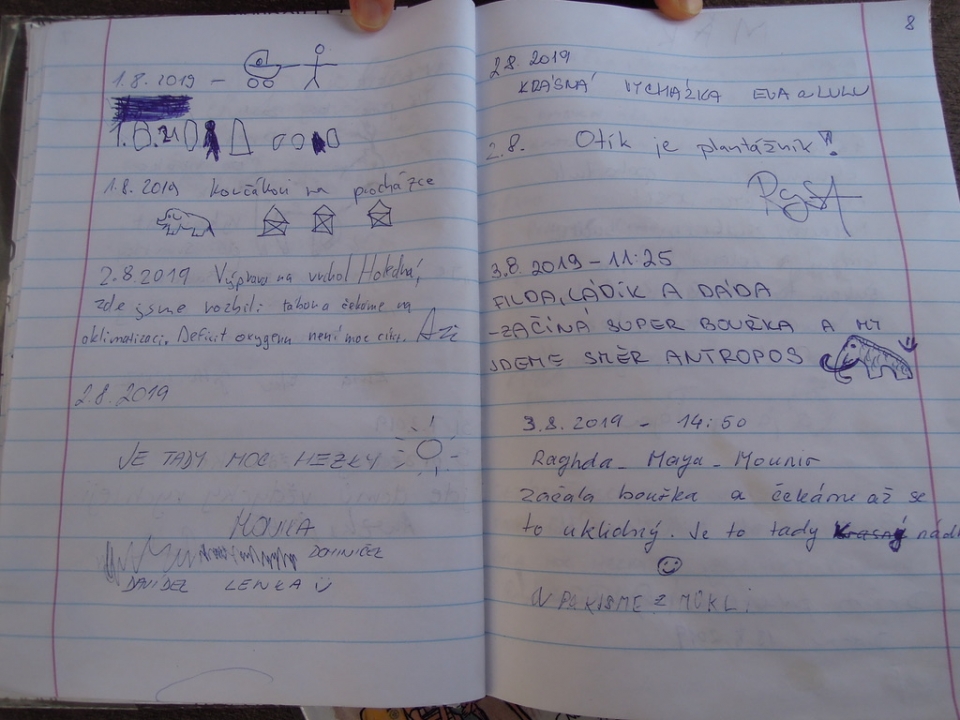 1.8.2019 –
1.8.2019 na procházce
2.8.2019 Výprava na vrchol
zde jsme rozbili tábor a čekáme na
aklimatizaci. Deficit oxygenu není moc
2.8.2019
JE TADY MOC HEZKY
MONČA
DOMINIČEK
DAVÍDEK LENKA
8
2.8. 2019
KRÁSNÁ VYCHÁZKA EVA a LULU
2.8. Otík je plantážník!
3.8. 2019 – 11:25
FILDA, LÁDÍK A DÁDA
- ZAČÍNÁ SUPER BOUŘKA A MY
JDEME SMĚR ANTROPOS
3.8.2019 - 14:50
Raghda - Maya - Mounir
začala bouřka a čekáme až se
to uklidný. Je to tady
ZMOKLI